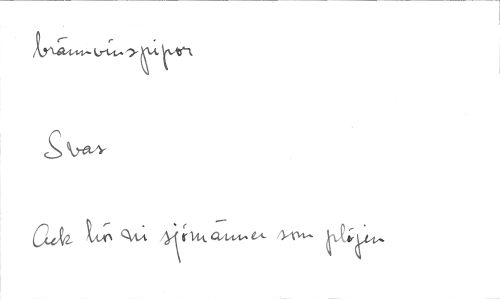 brännvinspipor
Svas
Ack hör ni sjömänner som plöjen